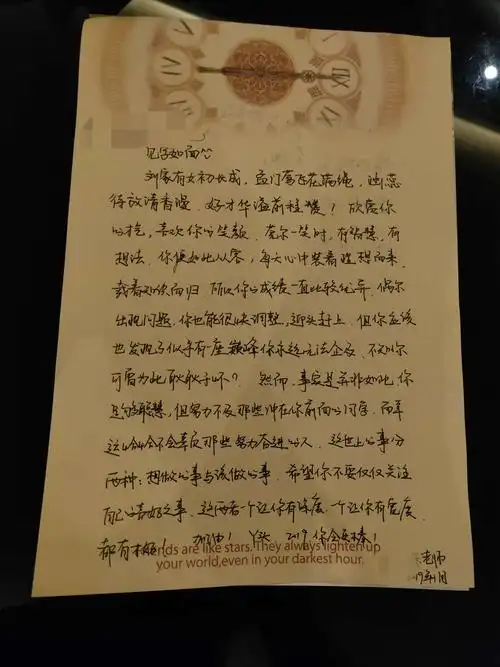 见字如面^^
刘家有女初长成，孟门
待放清香漫。好才华溢前程
欣赏你的
喜欢你的笑颜。莞尔一笑时，有智慧，有
想法。你便如此从容，每天心中装着理想而来，
载着知识而归。所以你的成绩一直比较优异，偶尔
出现问题，你也能很快调整，迎头赶上。但你应该
也发现了似乎有一座巅峰你永远无法企及，不知你
可曾为此耿耿于怀？然而，事实是并非如此，你
是够聪慧，但努力不及那些冲在你前面的同学，而年
这公公会不会辜负那些努力奋进的人。这世上的事分
两种：想做的事与该做的事，希望你不要仅仅关注
自己喜好之事，这两者一个让你有深度，一个让你有宽度，
都有
加油！丫头 2019 你会更棒！
friends are like stars. They always lighten up
your world, even in your darkest hour.
老师
19年1月